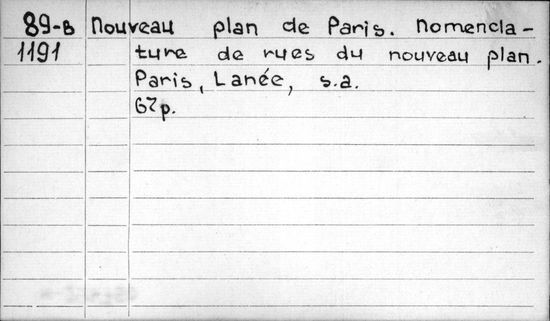 89-B Nouveau plan de Paris. Nomencla-
1191 ture de rues du nouveau plan.
Paris, Lanée, s.a.
67p.